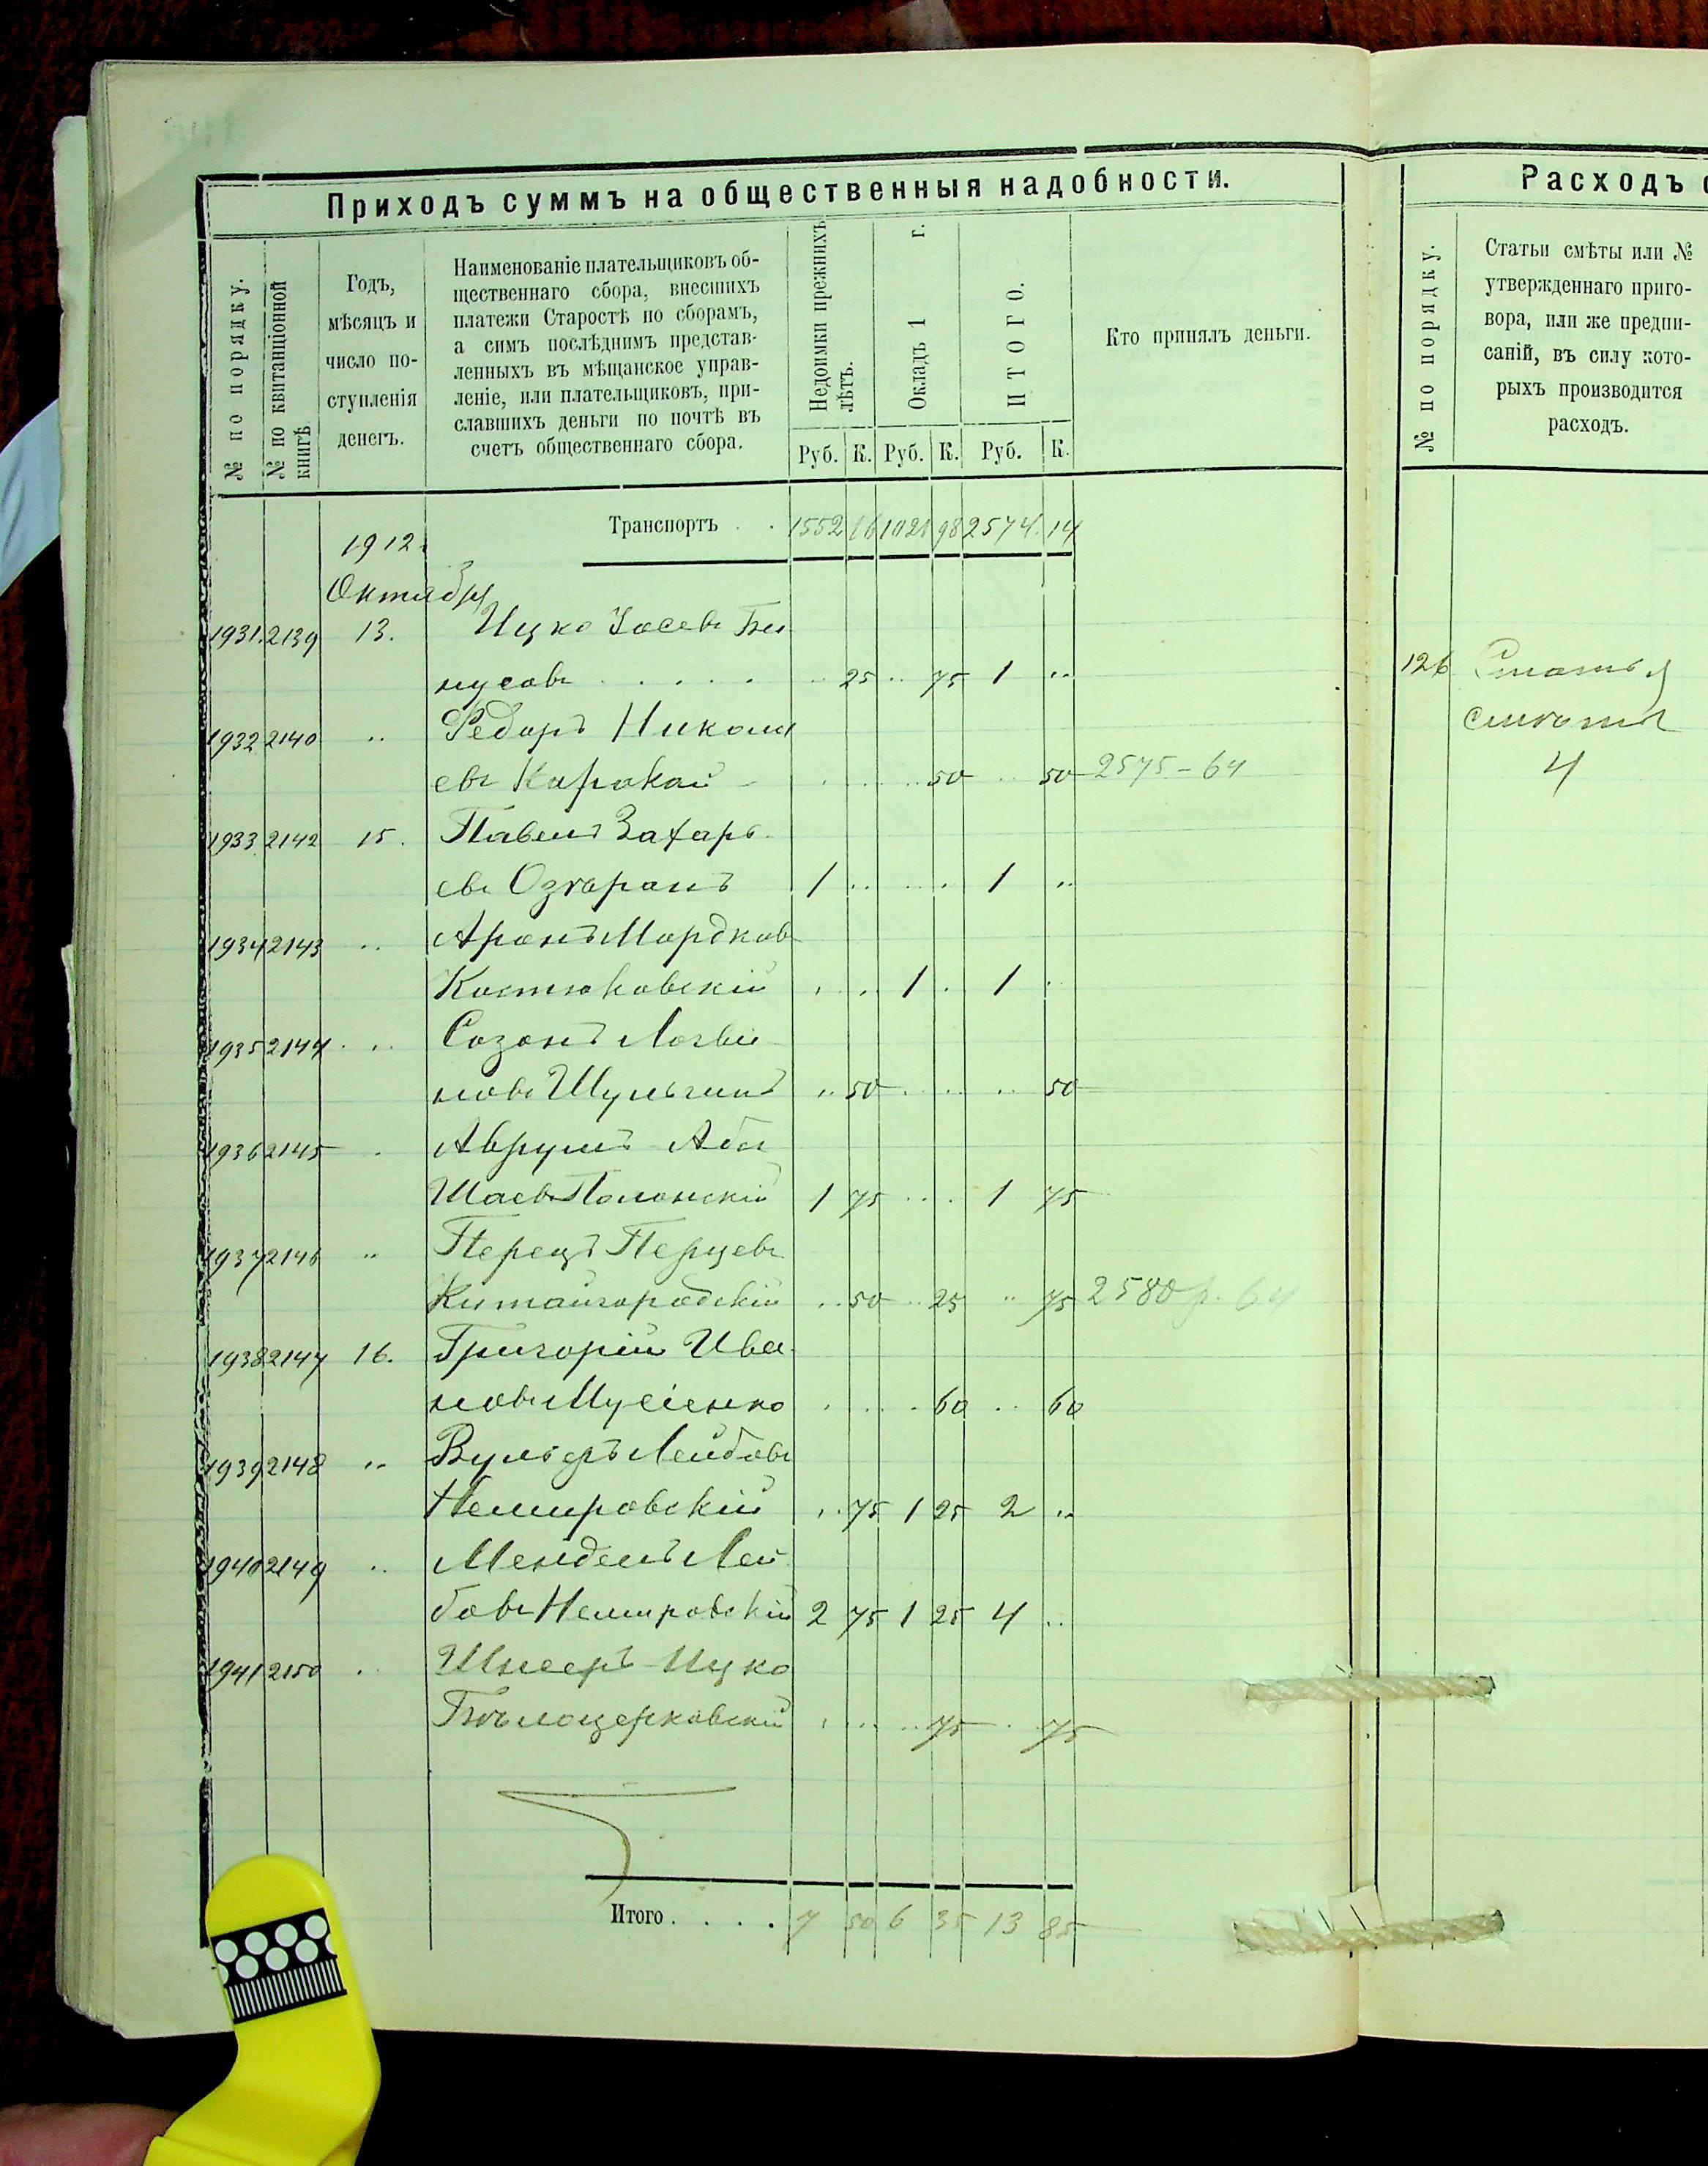 Приходъ суммъ на общественныя надобности.
№ по порядку.
№ по квитанціонной книгѣ
Годъ,
мѣсяцъ и
число по-
ступленія
денегъ.
Наименованіе плательщиковъ об-
щественнаго сбора, внесшихъ
платежи Старостѣ по сборамъ,
а симъ послѣднимъ представ-
ленныхъ въ мѣщанское управ-
леніе, или плательщиковъ, при-
славшихъ деньги по почтѣ въ
счетъ общественнаго сбора.
Недоимки прежнихъ лѣтъ.
Окладъ 1 г.
ИТОГО.
Руб. К. Руб. К. Руб. К.
Кто принялъ деньги.
Транспортъ . . 1552 16 1021 98 2574 14
1912
Октября
1931 2139 13. Ицко Іосевъ Би
нусовъ . . . . . .. 25 .. 75 1 ..
1932 2140 .. Федоръ Никола
евъ Карокай . . . .. 50 .. 50 2575-64
1933 2142 15. Павелъ Захарь
евъ Озгаранъ 1 .. .. . 1 ..
1934 2143 .. Аронъ Мордковъ
Костюковскій . .. 1 . 1 ..
1935 2144 .. Созонъ Логви
новъ Шульгинъ .. 50 . .. .. 50
1936 2145 . Аврумъ Аба
Шаевъ Полонскій 1 75 .. . 1 75
1937 2146 .. Перецъ Перцевъ
Китайгородскій .. 50 .. 25 .. 75 2580 р. 64
1938 2147 16. Григорій Ива
новъ Мусіенко . . . . 60 .. 60
1939 2148 .. Вульфъ Лейбовъ
Немировскій .. 75 1 25 2 ..
1940 2149 .. Мендель Лей
бовъ Немировскій 2 75 1 25 4 ..
1941 2150 . Шнееръ Ицко
Бѣлоцерковскій . . .. .. 75 . 75
Итого . . . . 7 50 6 35 13 85
Расходъ
№ по порядку.
Статьи смѣты или №
утвержденнаго приго-
вора, или же предпи-
саній, въ силу кото-
рыхъ производится
расходъ.
126 Статья
смѣты
4